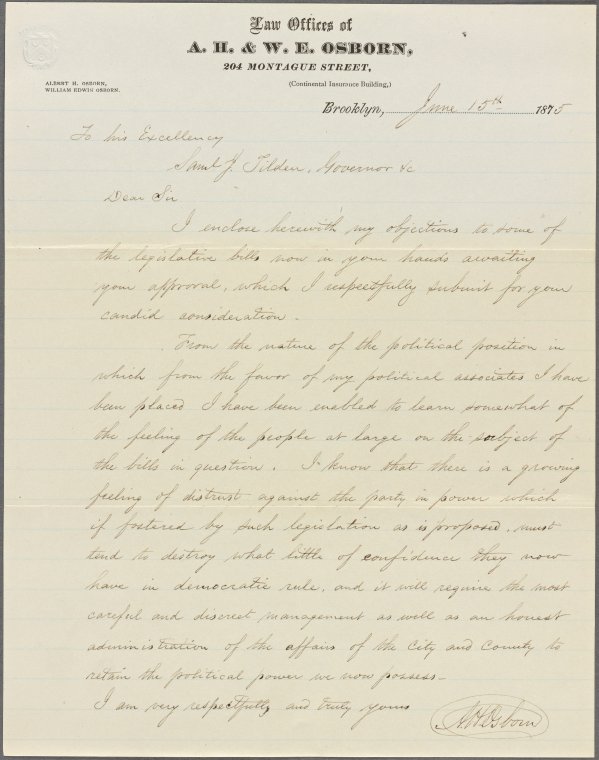 Law Offices of
A. H. & W. E. OSBORN,
204 MONTAGUE STREET,
(Continental Insurance Building,)
ALBERT H. OSBORN,
WILLIAM EDWIN OSBORN.
Brooklyn, June 15th 1875
To his Excellency
Saml J. Tilden, Governor &c
Dear Sir
I enclose herewith my objections to some of
the legislative bills now in your hands awaiting
your approval, which I respectfully submit for your
candid consideration.
From the nature of the political position in
which from the favor of my political associates I have
been placed I have been enabled to learn somewhat of
the feeling of the people at large on the subject of
the bills in question. I know that there is a growing
feeling of distrust against the party in power which
if fostered by such legislation as is proposed, must
tend to destroy what little of confidence they now
have in democratic rule, and it will require the most
careful and discreet management as well as an honest
administration of the affairs of the City and County to
retain the political power we now possess—
I am very respectfully and truly yours
A H Osborn